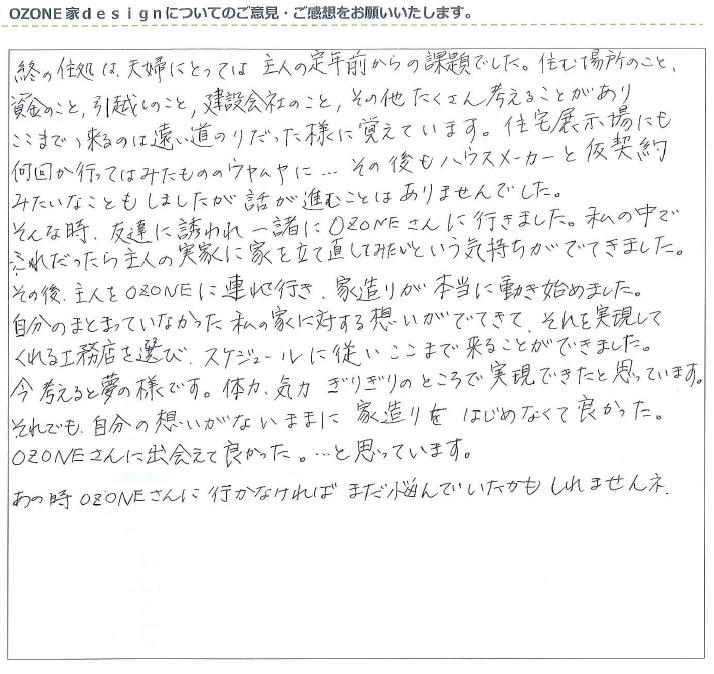 OZONE家designについてのご意見・ご感想をお願いいたします。
終の住処は、夫婦にとっては 主人の定年前からの課題でした。住む場所のこと、
資金のこと,引越しのこと,建設会社のこと,その他 たくさん考えることがあり
ここまで来るのは遠い道のりだった様に覚えています。住宅展示場にも
何回か行ってはみたもののウヤムヤに… その後もハウスメーカーと仮契約
みたいなこともしましたが話が進むことはありませんでした。
そんな時、友達に誘われ一諸にOZONEさんに行きました。私の中で
これだったら主人の実家に家を立て直してみたいという気持ちがでてきました。
その後、主人をOZONEに連れて行き、家造りが本当に動き始めました。
自分のまとまっていなかった私の家に対する想いがでてきて、それを実現して
くれる工務店を選び、スケジュールに従いここまで来ることができました。
今考えると夢の様です。体力、気力 ぎりぎりのところで実現できたと思っています。
それでも、自分の想いがないままに 家造りを はじめなくて良かった。
OZONEさんに出会えて良かった。…と思っています。
あの時OZONEさんに 行かなければ まだ悩んでいたかも しれませんネ.